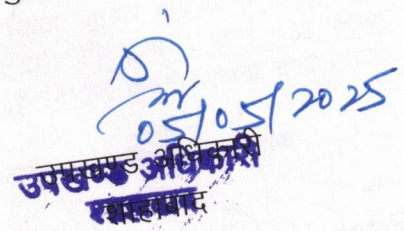 05/05/2025
उपखण्ड अधिकारी
उपखण्ड अधिकारी
शाहाबाद